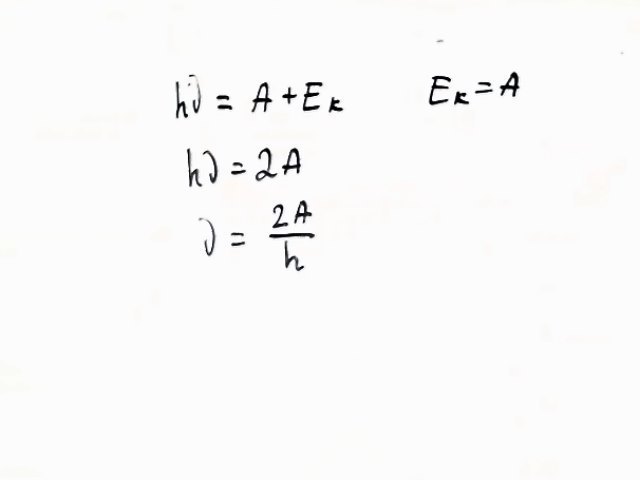 hν = A + Eₖ    Eₖ = A
hν = 2A
ν = 2A/h